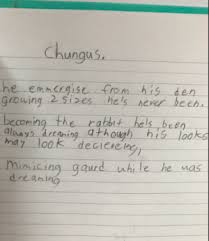 Chungus.
he emmergise from his den
growing 2 sizes he's never been.
becoming the rabbit he's been
always dreaming athough his looks
may look decieveing,
Mimicing gaurd while he was
dreaming